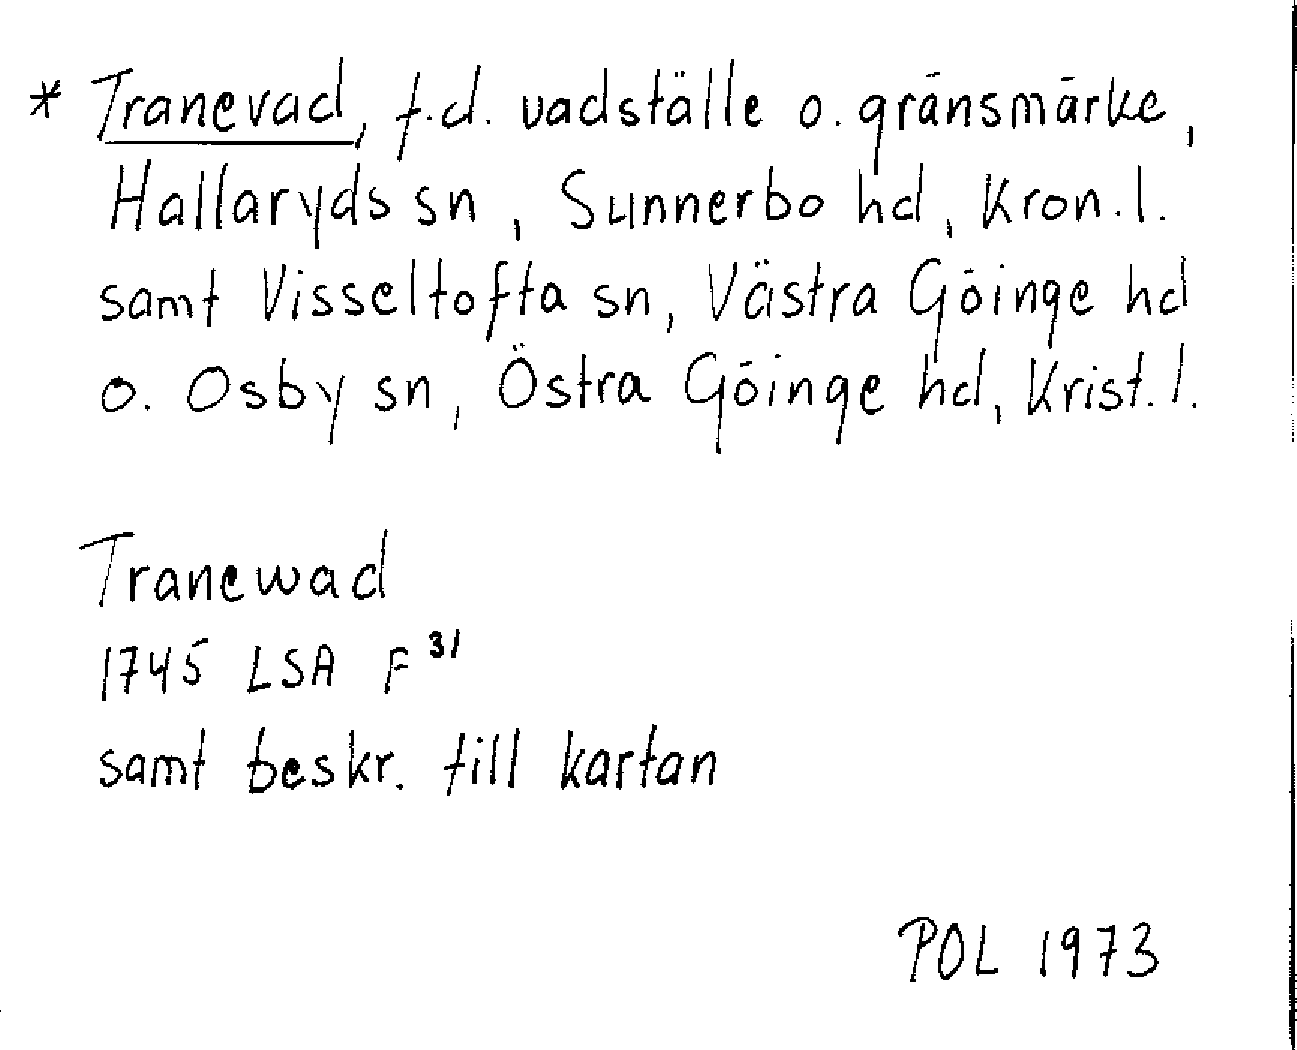 * Tranevad, f.d. vadställe o. gränsmärke,
Hallaryds sn, Sunnerbo hd, Kron.l.
samt Visseltofta sn, Västra Göinge hd
o. Osby sn, Östra Göinge hd, Krist.l.
Tranewad
1745 LSA F 31
samt beskr. till kartan
POL 1973